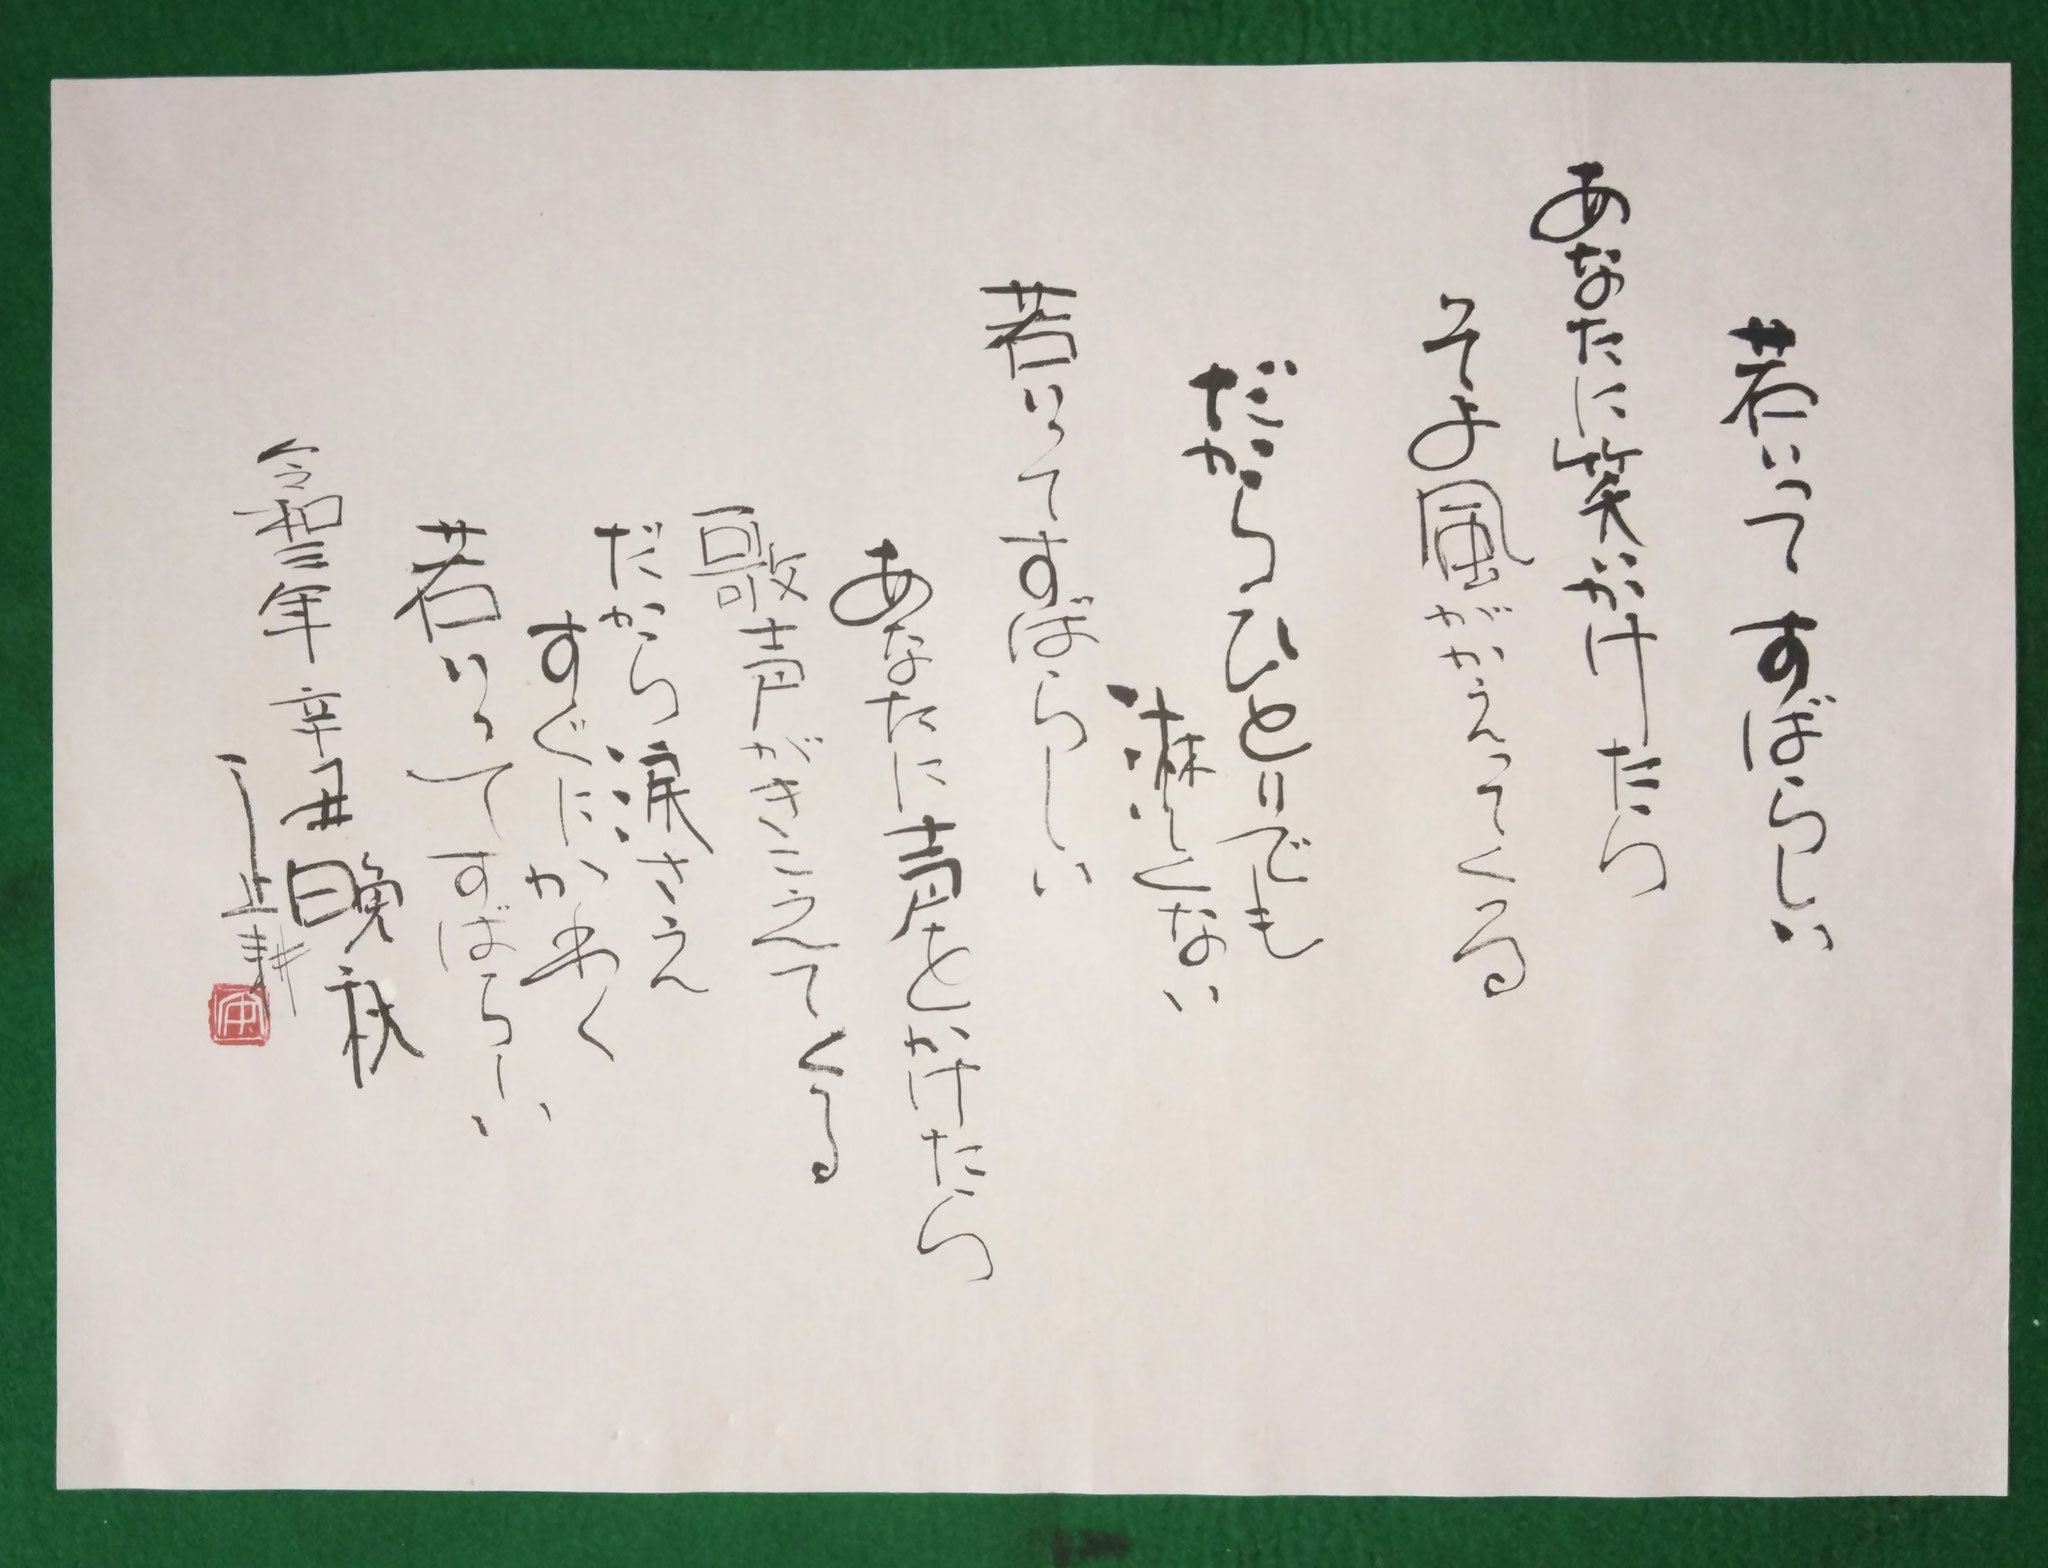 若いって すばらしい
あなたに笑いかけたら
そよ風がかえってくる
だからひとりでも
淋しくない
若いってすばらしい
あなたに声をかけたら
歌声がきこえてくる
だから涙さえ
すぐにかわく
若いってすばらしい
令和三年 辛丑 晩秋